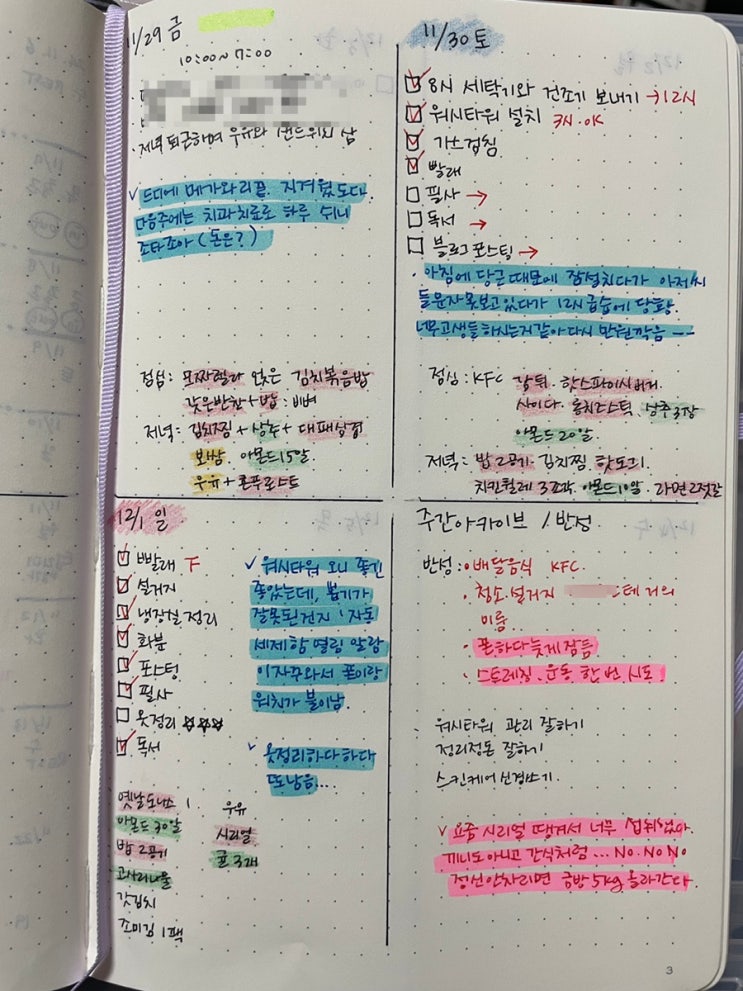 11/29 금
10:00~7:00
· 저녁 퇴근하며 우유와 샌드위치 삼
✓ 드디에 메가와리 끝. 지겨웠도다
다음주에는 치과치료로 하루 쉬니
조타조아 (돈은?)
점심: 모짜렐라 얹은 김치볶음밥
갖은반찬+밥: 비벼
저녁: 김치찜 + 상추 + 대패삼겹
보쌈. 아몬드 15알
우유 + 콘푸로스트
11/30 토
8시 세탁기와 건조기 보내기 → 12시
워시타워 설치 3시.OK
가스검침
빨래
필사 →
독서 →
블로그 포스팅 →
· 아침에 당근 때문에 잠설치다가 아저씨
들 문자 못보고 있다가 12시 급습에 당황.
너무 고생들하시는거 같아 다시 만원깎음 ㅡㅡ
점심: KFC 갓튀. 핫스파이시버거.
사이다. 상추 3장
아몬드 20알
저녁: 밥 2공기 김치찜. 핫도그.
치킨휠레 3조각 아몬드 10알. 라면 2젓갈
12/1 일
빨래 F
설거지
냉장실 정리
화분
포스팅
필사
옷정리 ☆☆☆
독서
✓ 워시타워 오니 좋긴
좋았는데, 뽑기가
잘못된건지 '자동
세제함 열림 알람
이 자꾸와서 폰이랑
워치가 불이남
✓ 옷정리하다하다
또남음...
옛날도너스 1
아몬드 30알
밥 2공기
고사리나물
갓김치
조미김 1팩
우유
시리얼
귤 3개
주간아카이브 / 반성
반성: · 배달음식 KFC.
· 청소.설거지 테 거의
미룸
· 폰하다 늦게 잠듬
· 스트레칭. 운동 한 번 시도
워시타워 관리 잘하기
정리정돈 잘하기
스킨케어 신경쓰기.
✓ 요즘 시리얼 땡겨서 너무
끼니도 아니고 간식처럼 ... No. No No
정신안차리면 금방 5kg 올라간다
3